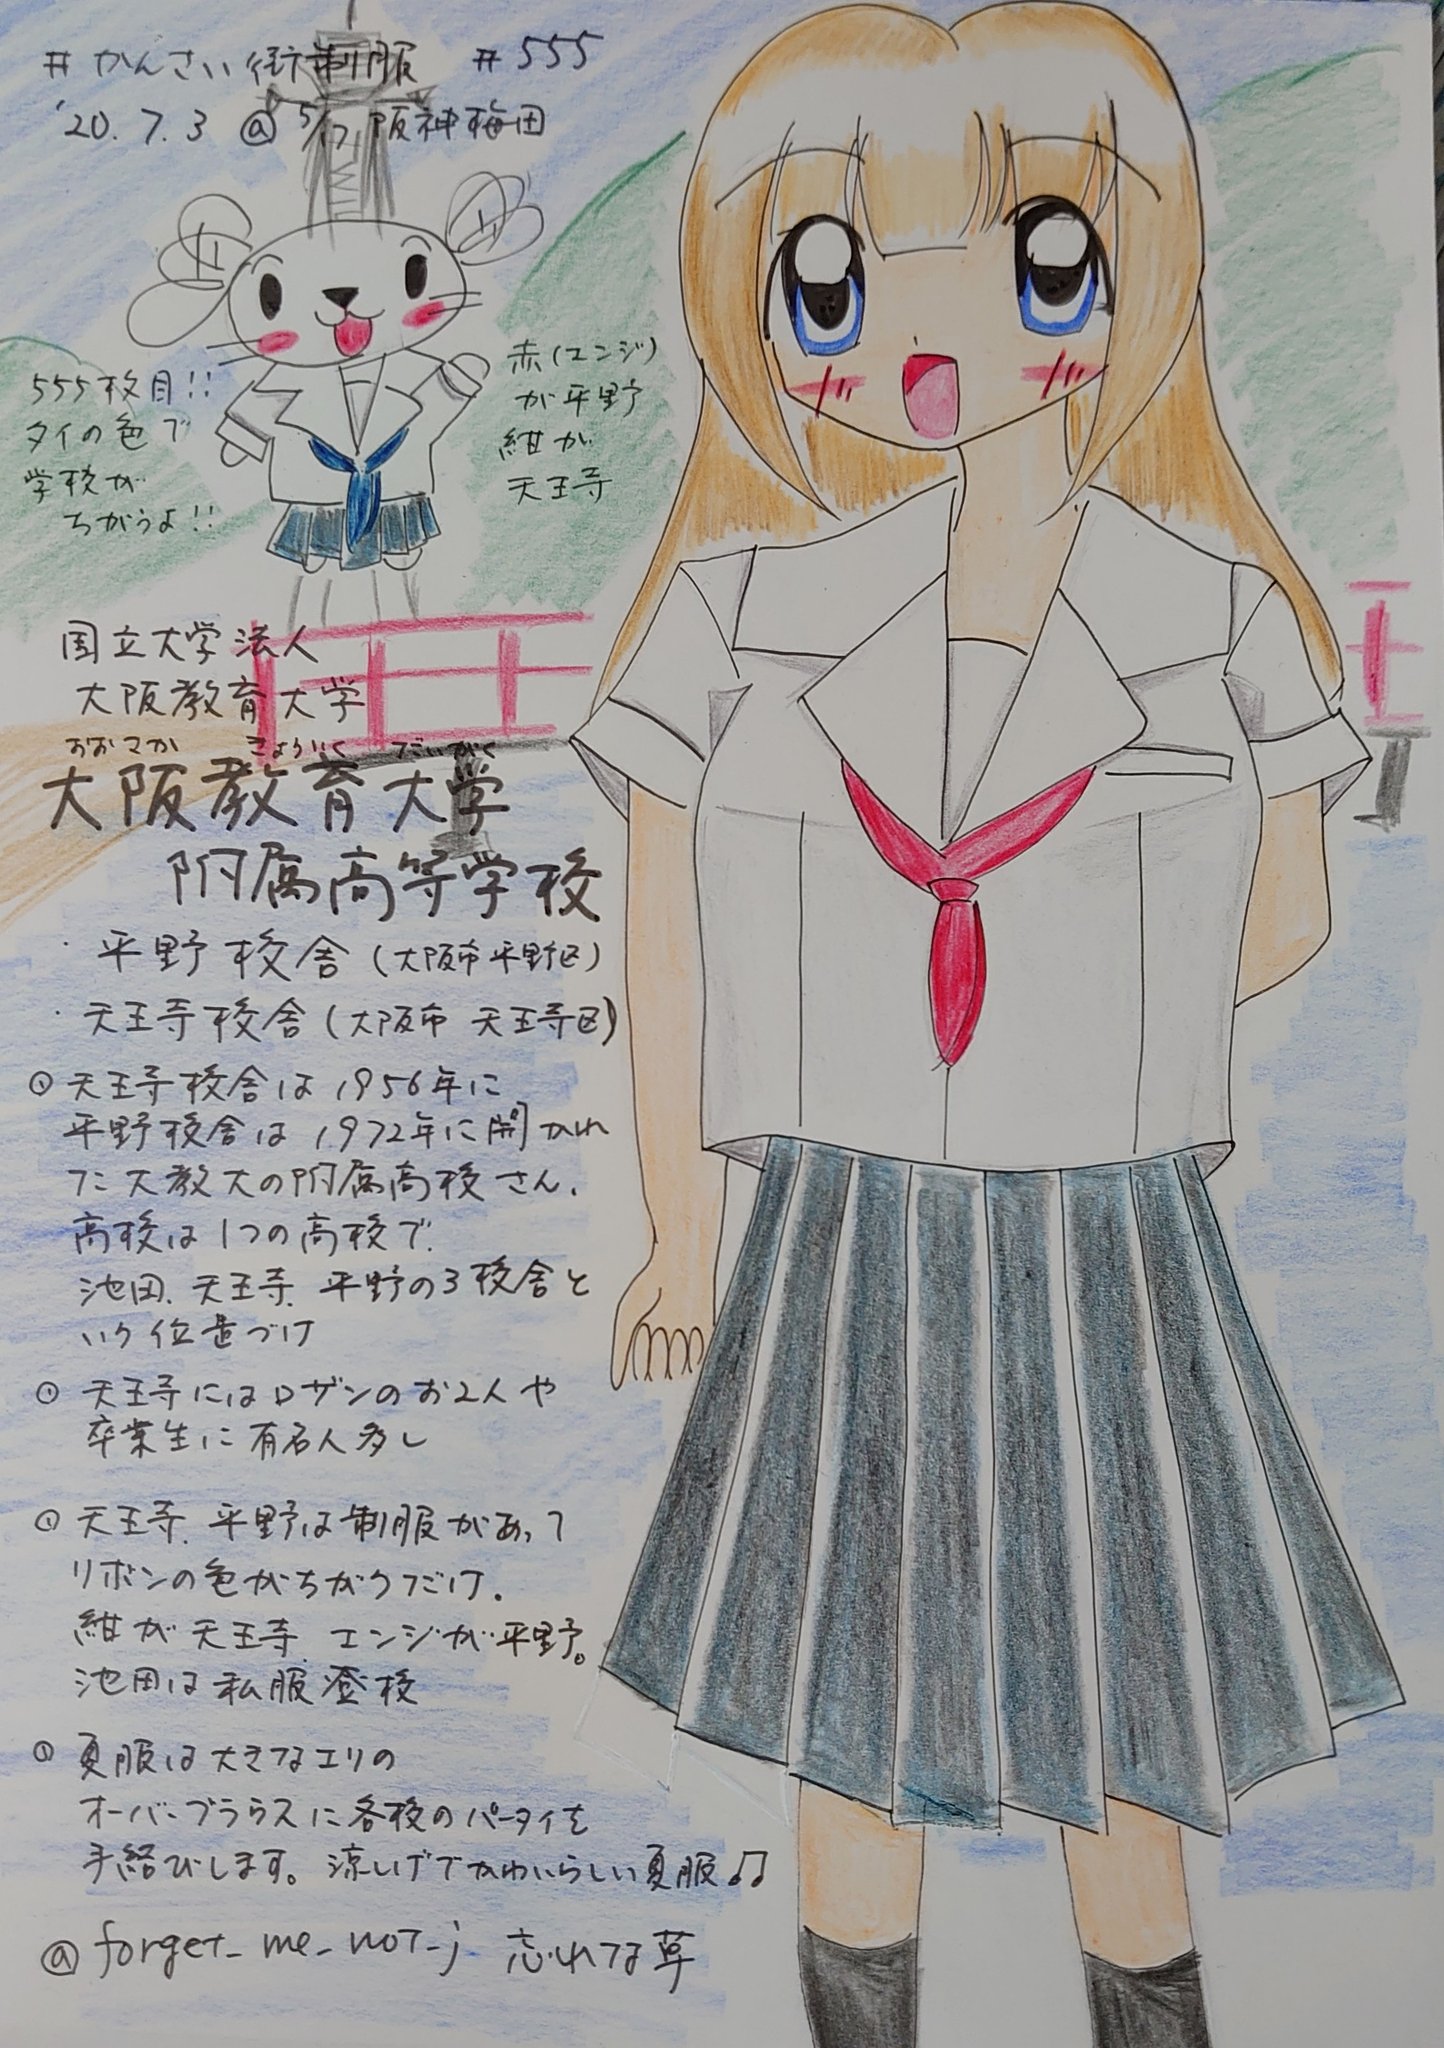 #かんさい街制服 #555
'20.7.3 @ 5/17 阪神梅田
555枚目!!
タイの色で
学校が
ちがうよ!!
赤(エンジ)
が平野
紺が
天王寺
国立大学法人
大阪教育大学
おおさか きょういく だいがく
大阪教育大学
附属高等学校
・平野校舎(大阪市平野区)
・天王寺校舎(大阪市天王寺区)
天王寺校舎は1956年に
平野校舎は1972年に開かれ
た大教大の附属高校さん、
高校は1つの高校で、
池田、天王寺、平野の3校舎と
いう位置づけ
天王寺にはロザンのお2人や
卒業生に有名人多し
天王寺、平野は制服があって
リボンの色がちがうだけ。
紺が天王寺、エンジが平野。
池田は私服登校
夏服は大きなエリの
オーバーブラウスに各校のパータイを
手結びします。涼しげでかわいらしい夏服♫
@forget_me_not_j 忘れな草